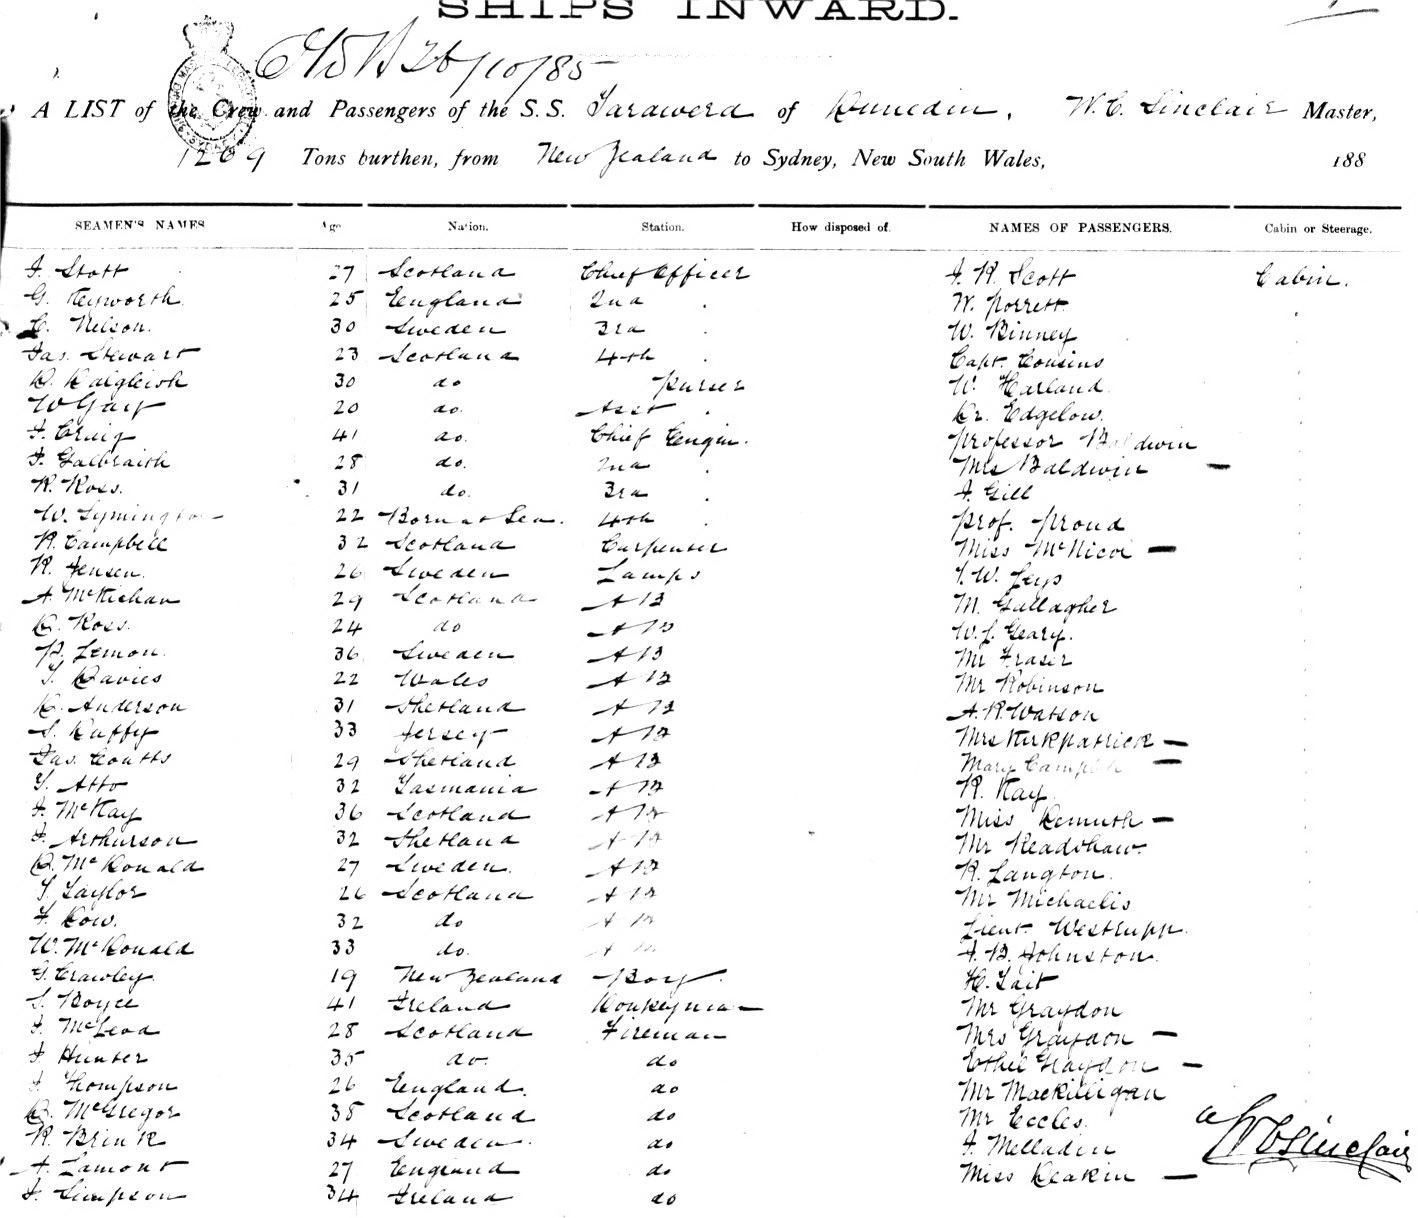 SHIPS INWARD.
26/10/85
A LIST of the Crew and Passengers of the S.S. Tarawera of Dunedin, W.C. Sinclair Master,
1269 Tons burthen, from New Zealand to Sydney, New South Wales, 188
SEAMEN'S NAMES Age Nation. Station. How disposed of. NAMES OF PASSENGERS. Cabin or Steerage.
J. Stott 27 Scotland Chief Officer J. R. Scott Cabin.
G. Keyworth 25 England 2nd W. Porrett
C. Nelson. 30 Sweden 3rd W. Binney
Jas. Stewart 23 Scotland 4th Capt. Cousins
D. Dalgleish 30 do Purser W. Harland
W Gay 20 do. Asst Dr. Edgelow.
J. Craig 41 do. Chief Engin. Professor Baldwin
J. Galbraith 28 do. 2nd Mrs Baldwin —
R. Ross. 31 do. 3rd J. Gill
W. Symington 22 Born at Sea. 4th Prof. Proud
R. Campbell 32 Scotland Carpenter Miss McNicol —
R. Jensen. 26 Sweden Lamps T. W. Leys
A. McKichan 29 Scotland AB M. Gallagher
D. Ross. 24 do AB W. J. Geary.
P. Lemon. 36 Sweden AB Mr Fraser
T. Davies 22 Wales AB Mr Robinson
D. Anderson 31 Shetland AB A. R. Watson
S. Duffy 33 Jersey AB Mrs Kirkpatrick —
Jas. Coutts 29 Shetland AB Mary Campbell —
T. Atto 32 Tasmania AB R. Kay
J. McKay 36 Scotland AB Miss Demuth —
J. Arthurson 32 Shetland AB Mr Readshaw.
D. McDonald 27 Sweden. AB R. Langton.
T. Taylor 26 Scotland AB Mr Michaelis
J. Dow. 32 do AB Lieut. Westrupp.
W. McDonald 33 do. AB J. B. Johnston.
G. Crawley 19 New Zealand Boy. H. Tait
S. Boyce 41 Ireland Donkeyman Mr Graydon
J. McLeod 28 Scotland Fireman Mrs Graydon —
J Hunter 35 do. do Ethel Graydon —
J. Thompson 26 England. do Mr Mackilligan
D. McGregor 38 Scotland do Mr Eccles.
R. Brink 34 Sweden. do J. Melladin
A. Lamont 27 England do Miss Deakin —
J. Simpson 34 Ireland do
WC Sinclair